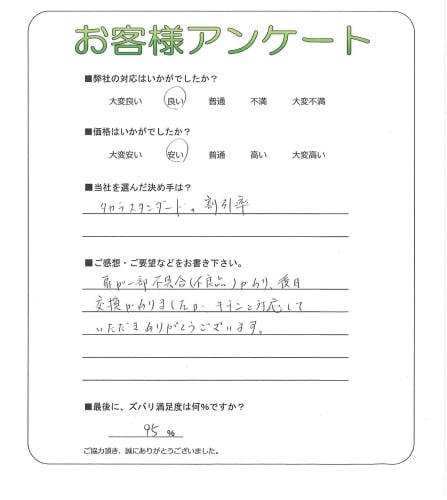 お客様アンケート
■弊社の対応はいかがでしたか？
大変良い 良い 普通 不満 大変不満
■価格はいかがでしたか？
大変安い 安い 普通 高い 大変高い
■当社を選んだ決め手は？
タカラスタンダードの割引率
■ご感想・ご要望などをお書き下さい。
扉が一部不具合(不良品)があり、後日
交換がありましたが、キチンと対応して
いただきありがとうございます。
■最後に、ズバリ満足度は何%ですか？
95 %
ご協力頂き、誠にありがとうございました。